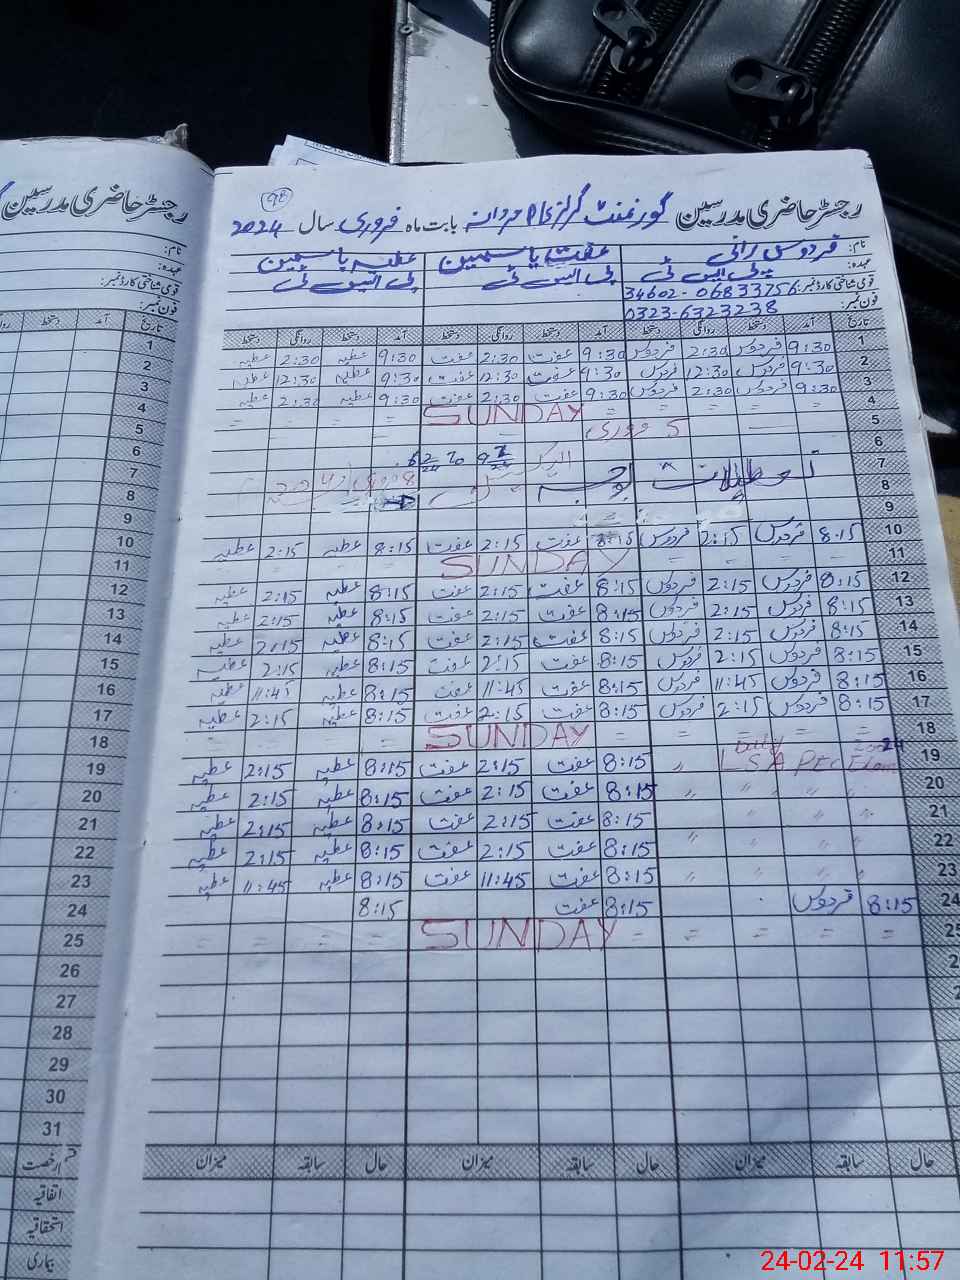 رجسٹر حاضری مدرسین
98
رجسٹر حاضری مدرسین گورنمنٹ گرلز مردانہ بابت ماہ فروری سال 2024
نام: فردوس رانی عفت یاسمین عطیہ یاسمین
عہدہ: پی ایس ٹی پی ایس ٹی پی ایس ٹی
قومی شناختی کارڈ نمبر: 34602-06833756
فون نمبر: 0323-6323238
تاریخ آمد دستخط روانگی دستخط آمد دستخط روانگی دستخط آمد دستخط روانگی دستخط
1 9:30 فردوس 2:30 فردوس 9:30 عفت 2:30 عفت 9:30 عطیہ 2:30 عطیہ
2 9:30 فردوس 12:30 فردوس 9:30 عفت 12:30 عفت 9:30 عطیہ 12:30 عطیہ
3 9:30 فردوس 2:30 فردوس 9:30 عفت 2:30 عفت 9:30 عطیہ 2:30 عطیہ
4 = = = = SUNDAY = = =
5 5 فروری
6
7 تعطیلات بوجہ الیکشن
8
9
10 8:15 فردوس 2:15 فردوس 8:15 عفت 2:15 عفت 8:15 عطیہ 2:15 عطیہ
11 = = = SUNDAY = = =
12 8:15 فردوس 2:15 فردوس 8:15 عفت 2:15 عفت 8:15 عطیہ 2:15 عطیہ
13 8:15 فردوس 2:15 فردوس 8:15 عفت 2:15 عفت 8:15 عطیہ 2:15 عطیہ
14 8:15 فردوس 2:15 فردوس 8:15 عفت 2:15 عفت 8:15 عطیہ 2:15 عطیہ
15 8:15 فردوس 2:15 فردوس 8:15 عفت 2:15 عفت 8:15 عطیہ 2:15 عطیہ
16 8:15 فردوس 11:45 فردوس 8:15 عفت 11:45 عفت 8:15 عطیہ 11:45 عطیہ
17 8:15 فردوس 2:15 فردوس 8:15 عفت 2:15 عفت 8:15 عطیہ 2:15 عطیہ
18 = = = = SUNDAY = = =
19 Duty LSA PEC Exam 2024 〃 8:15 عفت 2:15 عفت 8:15 عطیہ 2:15 عطیہ
20 〃 〃 〃 〃 8:15 عفت 2:15 عفت 8:15 عطیہ 2:15 عطیہ
21 〃 〃 〃 8:15 عفت 2:15 عفت 8:15 عطیہ 2:15 عطیہ
22 〃 〃 〃 〃 8:15 عفت 2:15 عفت 8:15 عطیہ 2:15 عطیہ
23 〃 〃 〃 〃 8:15 عفت 11:45 عفت 8:15 عطیہ 11:45 عطیہ
24 8:15 فردوس 8:15 عفت 8:15
25 = = = = = SUNDAY = = = =
26
27
28
29
30
31
حال سابقہ میزان حال سابقہ میزان حال سابقہ میزان
قسم رخصت
اتفاقیہ
استحقاقیہ
بیماری
24-02-24 11:57